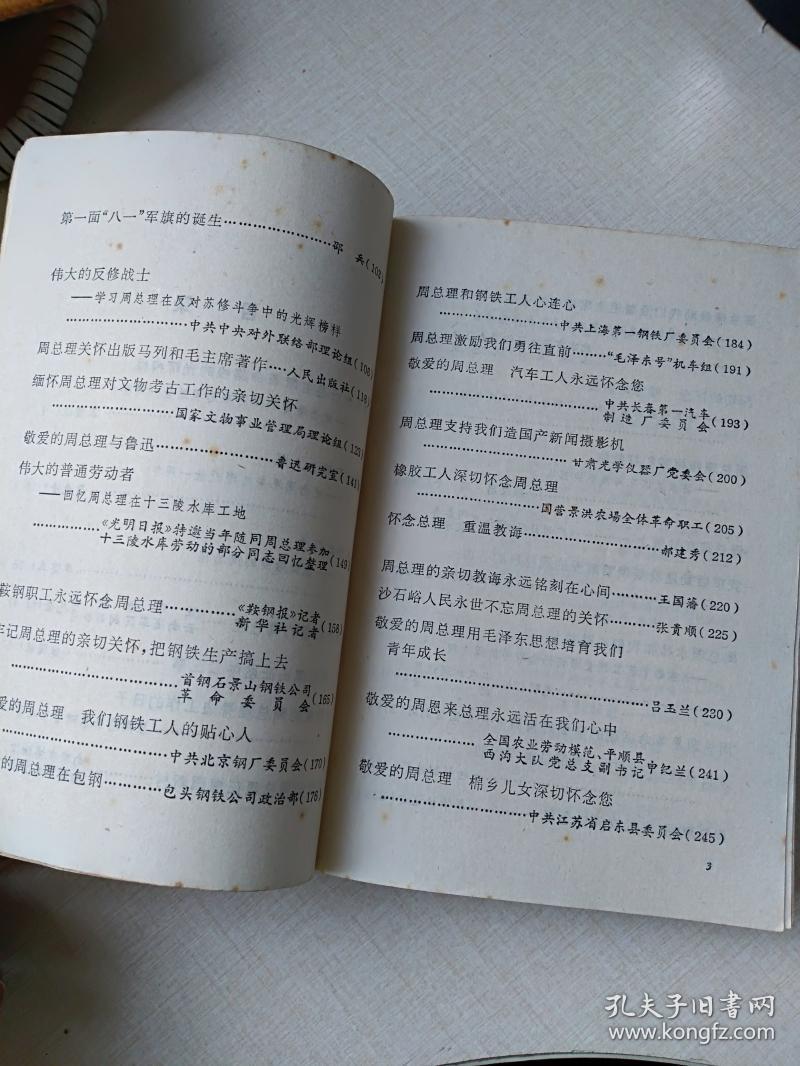 第一面“八一”军旗的诞生……………………邵 兵(102)
伟大的反修战士
——学习周总理在反对苏修斗争中的光辉榜样
……………………中共中央对外联络部理论组(106)
周总理关怀出版马列和毛主席著作……人民出版社(118)
缅怀周总理对文物考古工作的亲切关怀
……………………国家文物事业管理局理论组(123)
敬爱的周总理与鲁迅………………鲁迅研究室(141)
伟大的普通劳动者
——回忆周总理在十三陵水库工地
……………《光明日报》特邀当年随同周总理参加
十三陵水库劳动的部分同志回忆整理(149)
鞍钢职工永远怀念周总理……………《鞍钢报》记者
新华社记者(158)
牢记周总理的亲切关怀,把钢铁生产搞上去
……………………首钢石景山钢铁公司
革命委员会(165)
爱的周总理 我们钢铁工人的贴心人
……………………中共北京钢厂委员会(170)
的周总理在包钢…………包头钢铁公司政治部(176)
周总理和钢铁工人心连心
………………中共上海第一钢铁厂委员会(184)
周总理激励我们勇往直前……“毛泽东号”机车组(191)
敬爱的周总理 汽车工人永远怀念您
……………………中共长春第一汽车
制造厂委员会(193)
周总理支持我们造国产新闻摄影机
………………甘肃光学仪器厂党委会(200)
橡胶工人深切怀念周总理
………………国营景洪农场全体革命职工(205)
怀念总理 重温教诲………………郝建秀(212)
周总理的亲切教诲永远铭刻在心间………王国藩(220)
沙石峪人民永世不忘周总理的关怀………张贵顺(225)
敬爱的周总理用毛泽东思想培育我们
青年成长
……………………………………吕玉兰(230)
敬爱的周恩来总理永远活在我们心中
……………全国农业劳动模范、平顺县
西沟大队党总支副书记申纪兰(241)
敬爱的周总理 棉乡儿女深切怀念您
……………………中共江苏省启东县委员会(245)
3
孔夫子旧书网
www.kongfz.com